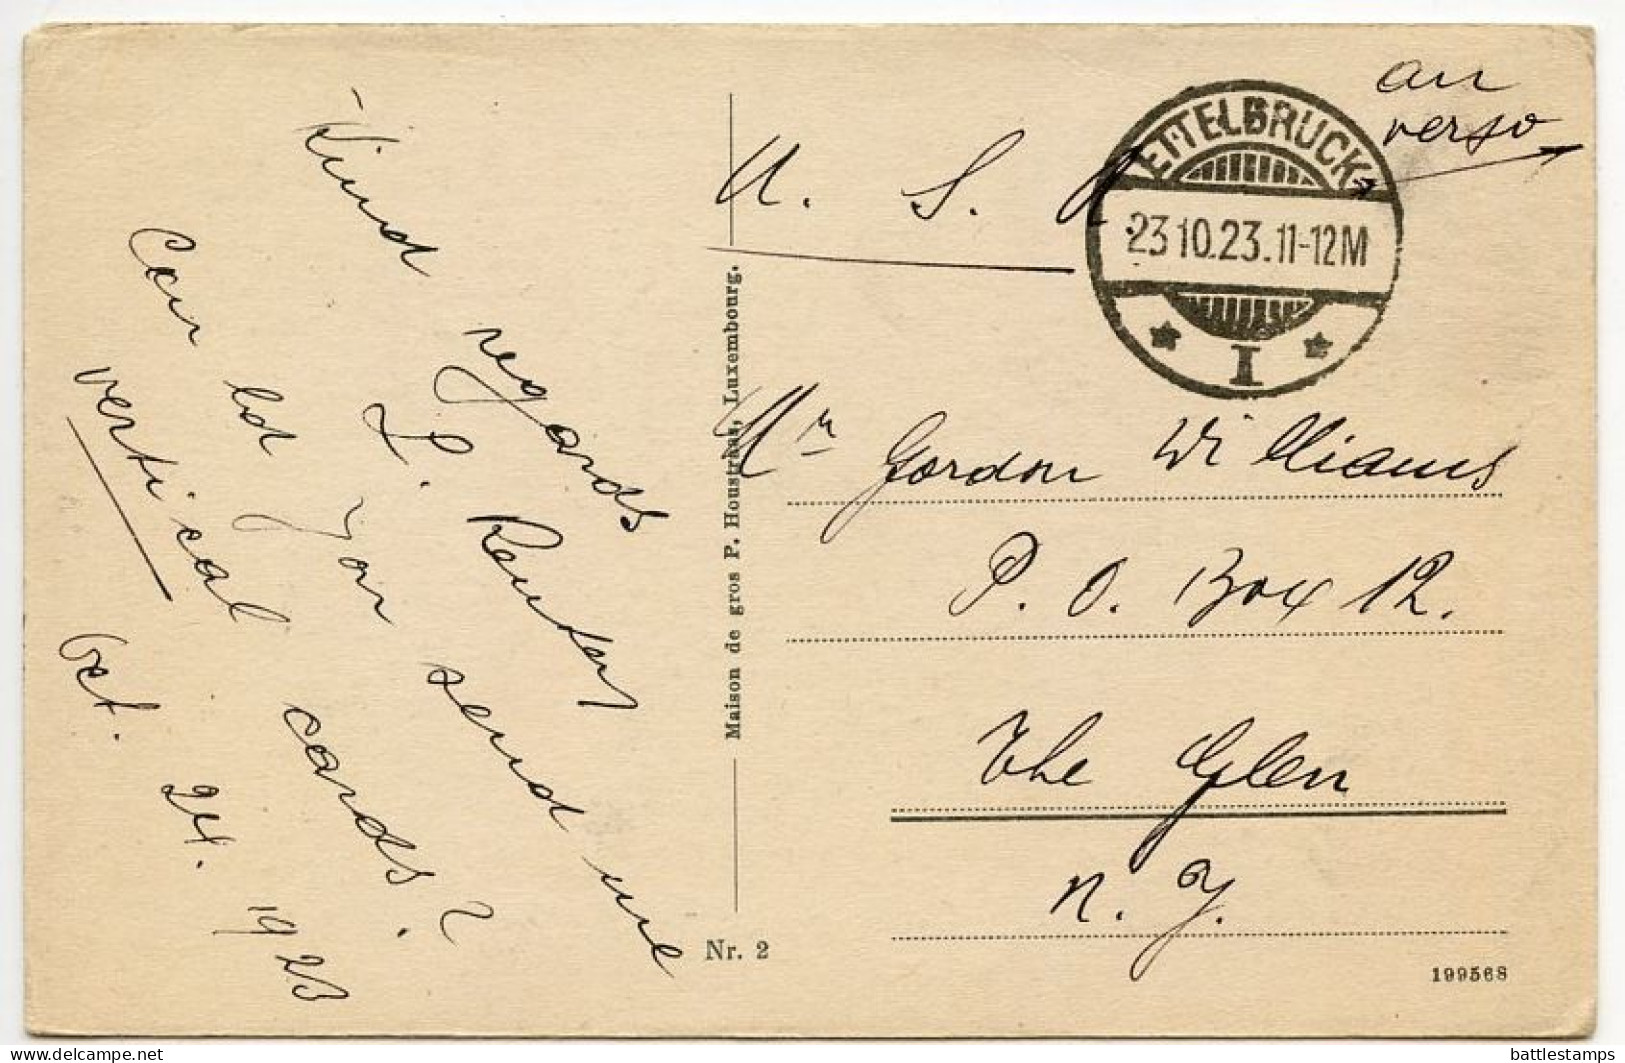 Kind regards
L. Reuter
Could you send me
vertical cards?
Oct. 24. 1923
Maison de gros P. Houstraas, Luxembourg.
Nr. 2
au
verso
ETTELBRUCK
23 10.23.11-12M
I
U. S. A.
Mr Gordon Williams
P. O. Box 12.
The Glen
N. Y.
199568
delcampe.net
battlestamps